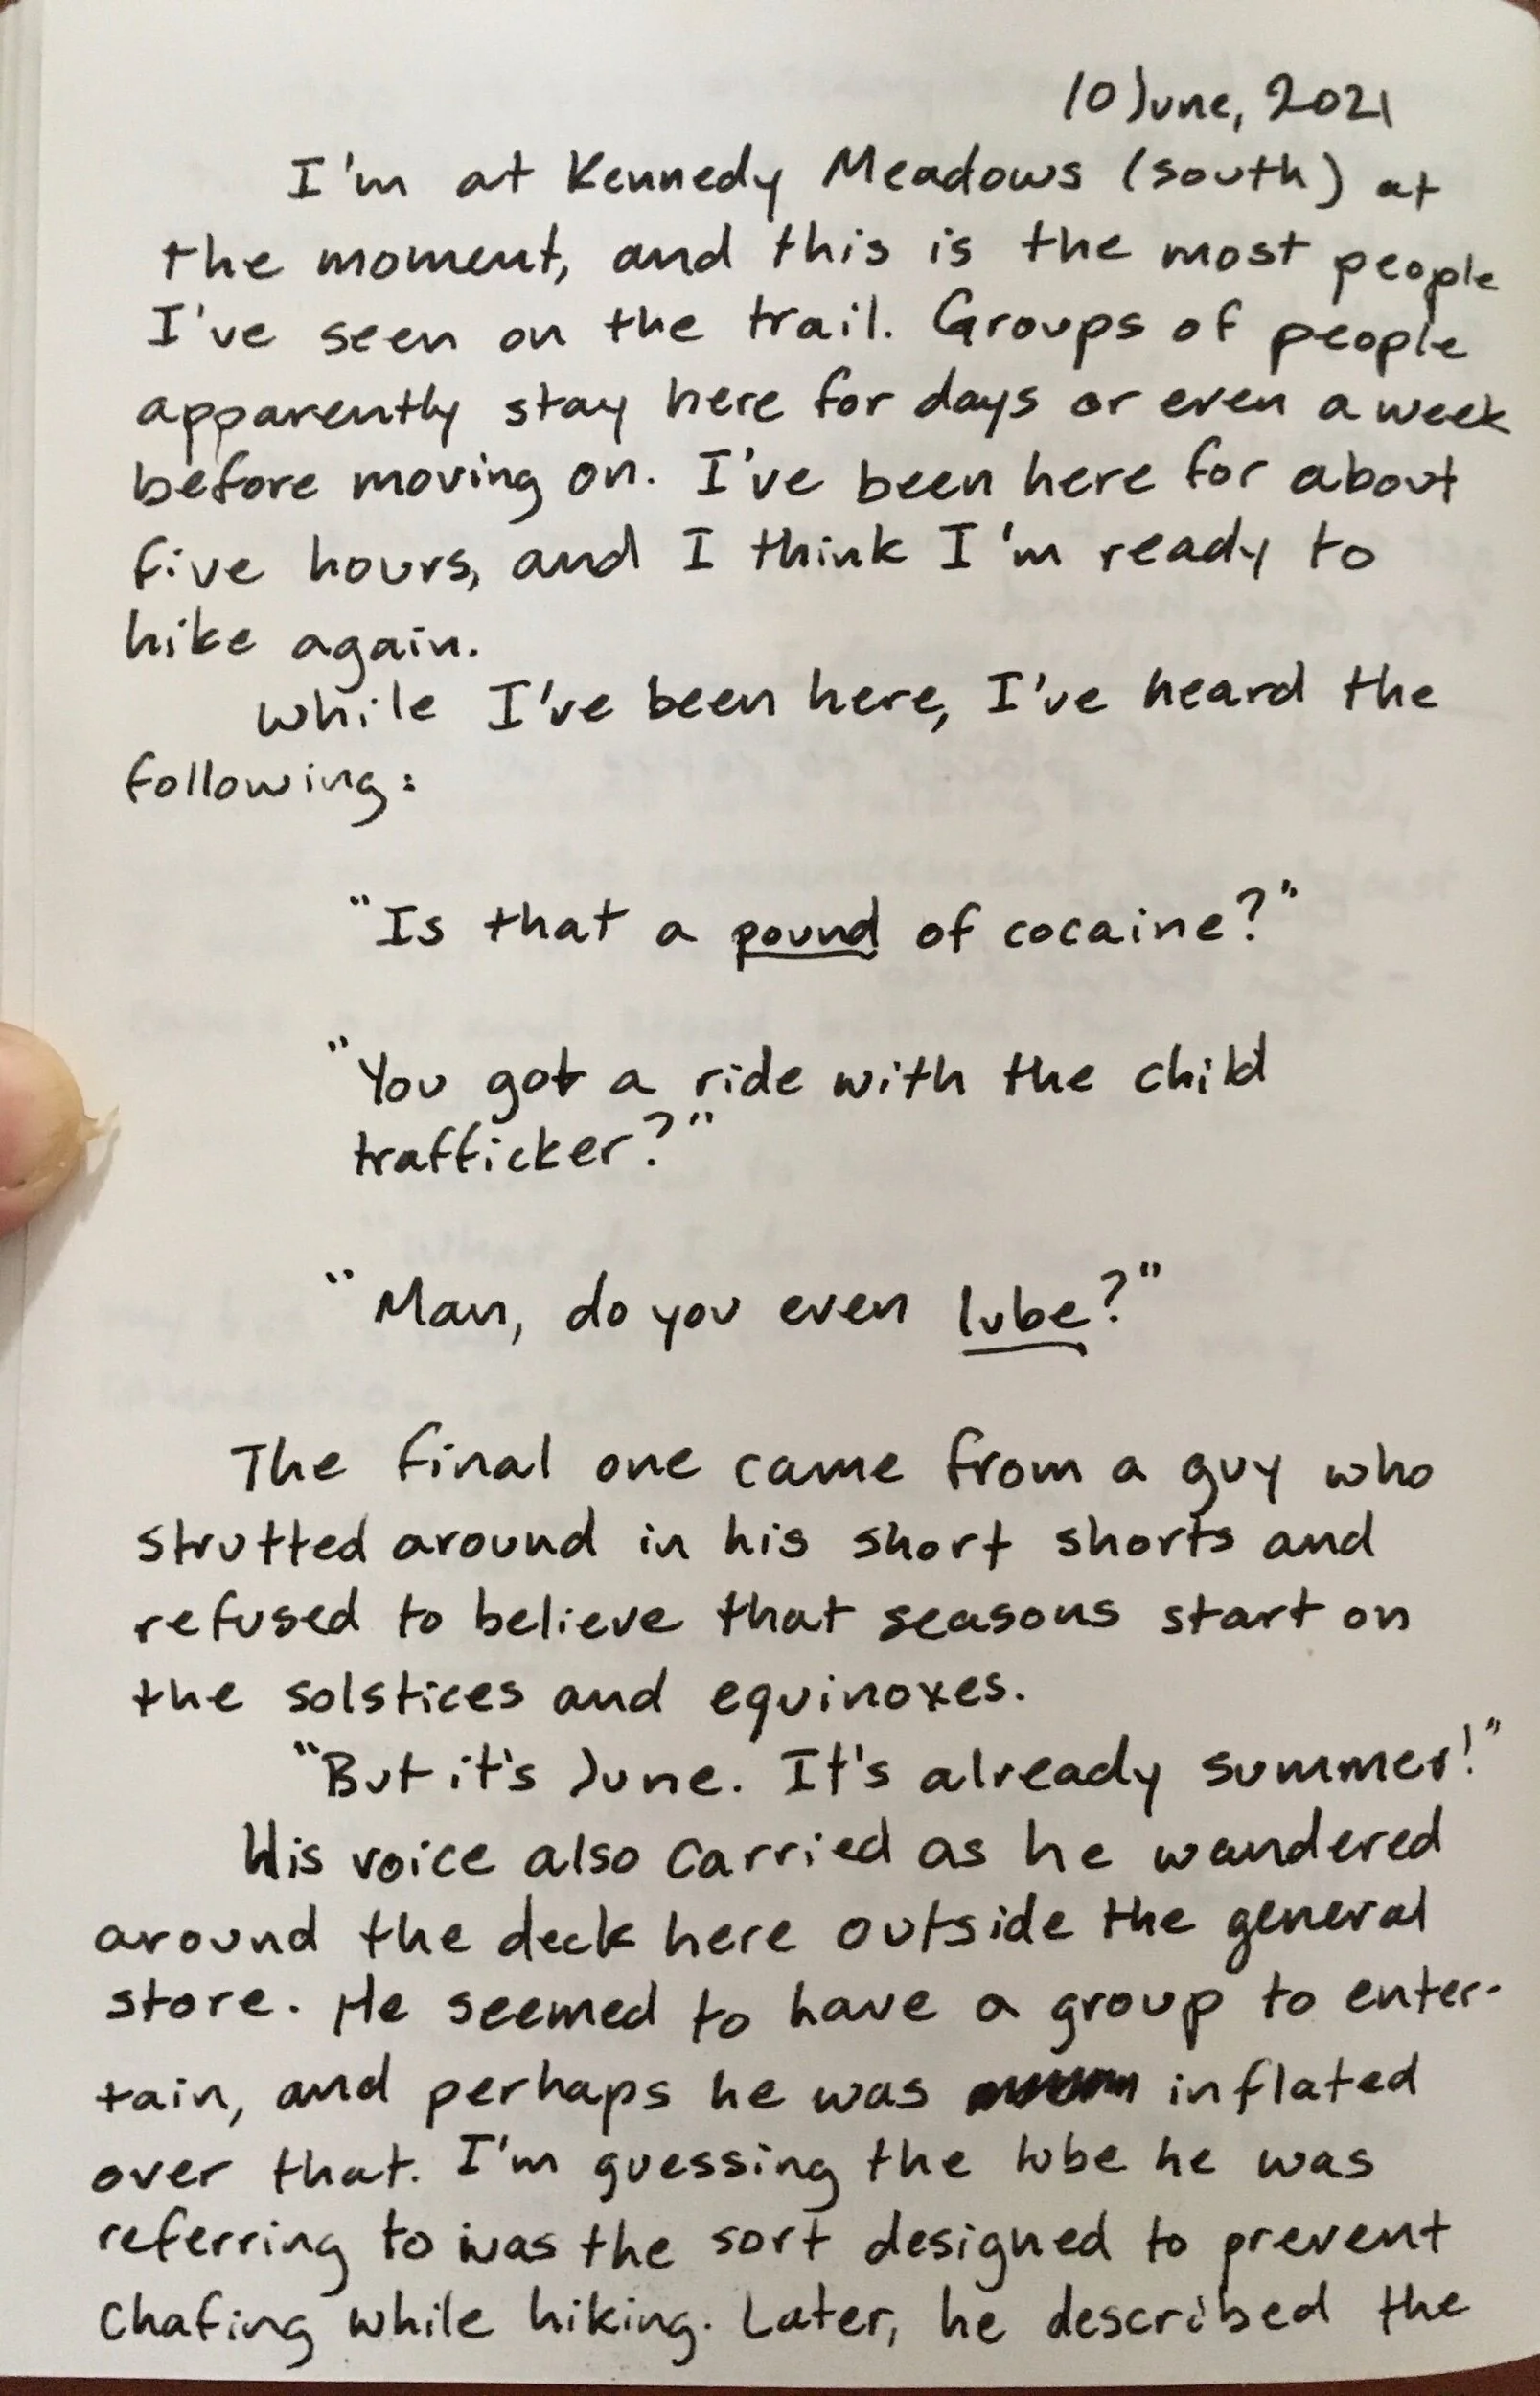 10 June, 2021
I'm at Kennedy Meadows (south) at
the moment, and this is the most people
I've seen on the trail. Groups of people
apparently stay here for days or even a week
before moving on. I've been here for about
five hours, and I think I'm ready to
hike again.
While I've been here, I've heard the
following:
"Is that a pound of cocaine?"
"You got a ride with the child
trafficker?"
"Man, do you even lube?"
The final one came from a guy who
strutted around in his short shorts and
refused to believe that seasons start on
the solstices and equinoxes.
"But it's June. It's already summer!"
His voice also carried as he wandered
around the deck here outside the general
store. He seemed to have a group to enter-
tain, and perhaps he was inflated
over that. I'm guessing the lube he was
referring to was the sort designed to prevent
chafing while hiking. Later, he described the